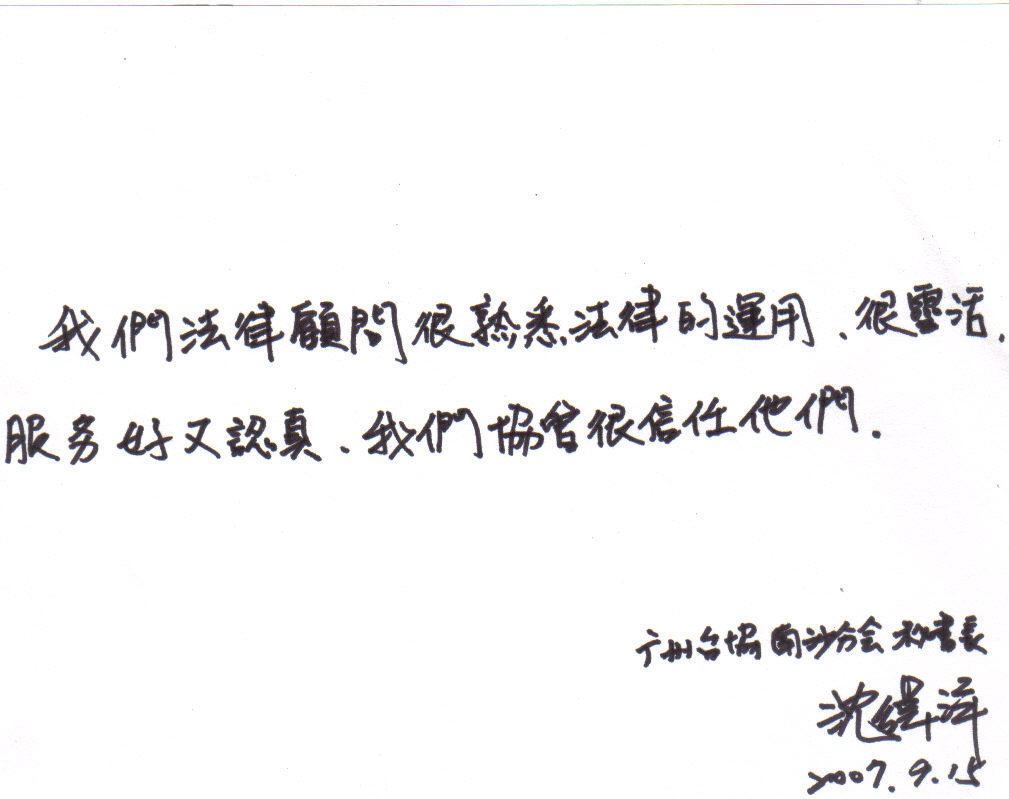 我們法律顧問很熟悉法律的運用、很靈活.
服务好又認真、我們協會很信任他們.
广州台協南沙分会秘書長
沈
2007.9.15